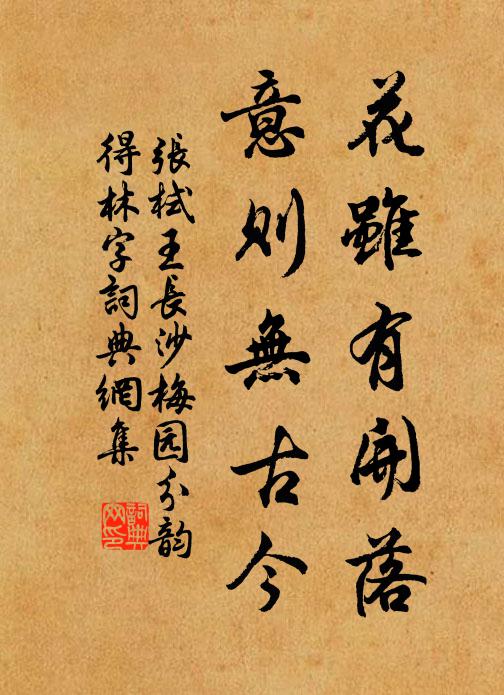 花雖有開落
意則無古今
張栻王長沙梅园分韵
得林字詞典網集
詞典
网印